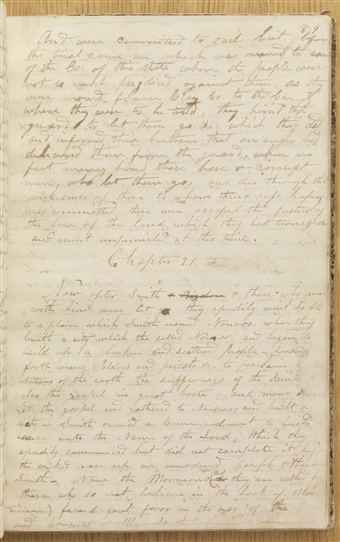 89
And were committed to jail but when
the trial came on which was moved to some
of the Co of the state where the people were
not so much prejudiced against them as they
were moved from Co to Co to the Co
where they were to be tried, they hired the
guard to let them go which they did
and informed their brethren that an angel had
delivered them from the guard, when in
fact money hired those base & corrupt
men, who let them go, and thus through the
wickedness of those to whom their safe keeping
was committed these men escaped the justice of
the law of the land which they had transgressed
and went unpunished at this time.
Chapter 21.
Now after Smith & those who were
with him were let go they speedily went to
to a place which Smith named Nauvoo, where they
built a city which they called Nauvoo and began to
build up a broken and scattered people sending
forth many Elders and priests &c. to proclaim to
Nations of the earth the sufferings of the Saints
also the gospel in great haste and
the gospel are gathered to Nauvoo and built a
city Smith received a Commandment to build
unto the Name of the Lord, Which they
speedily commenced but did not complete it, for
the wicked rose up and murdered Joseph & Hyrum
Smith Now the Mormons as they are called by
those who do not believe in the book of Mor
found great favor in the eyes of the
and